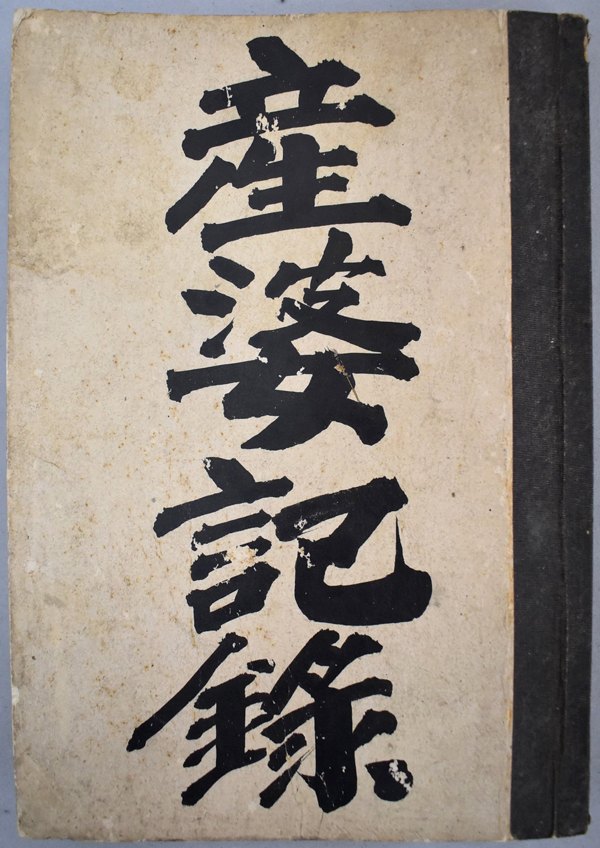 産婆記錄